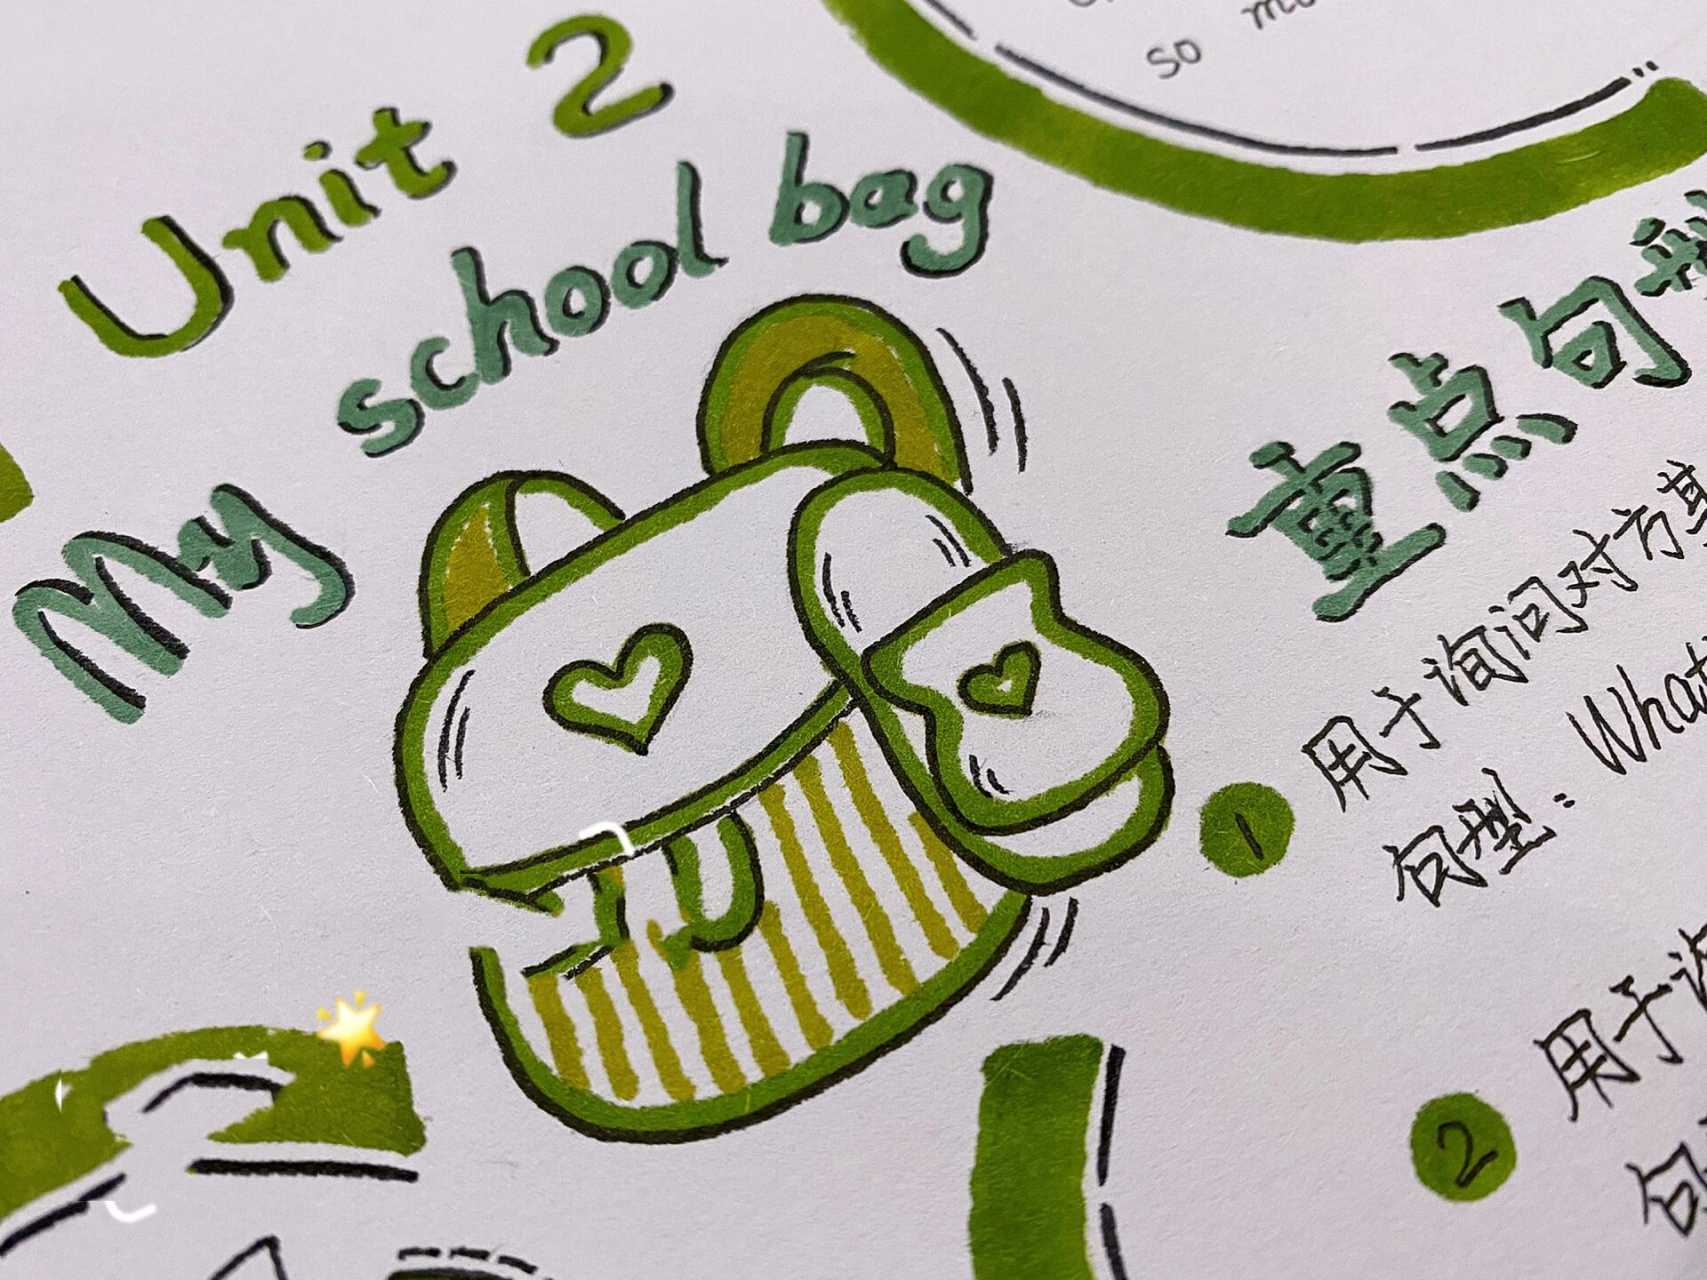 Unit 2
My school bag
so
重点句型
① 用于询问对方其
句型：What
② 用于询
句